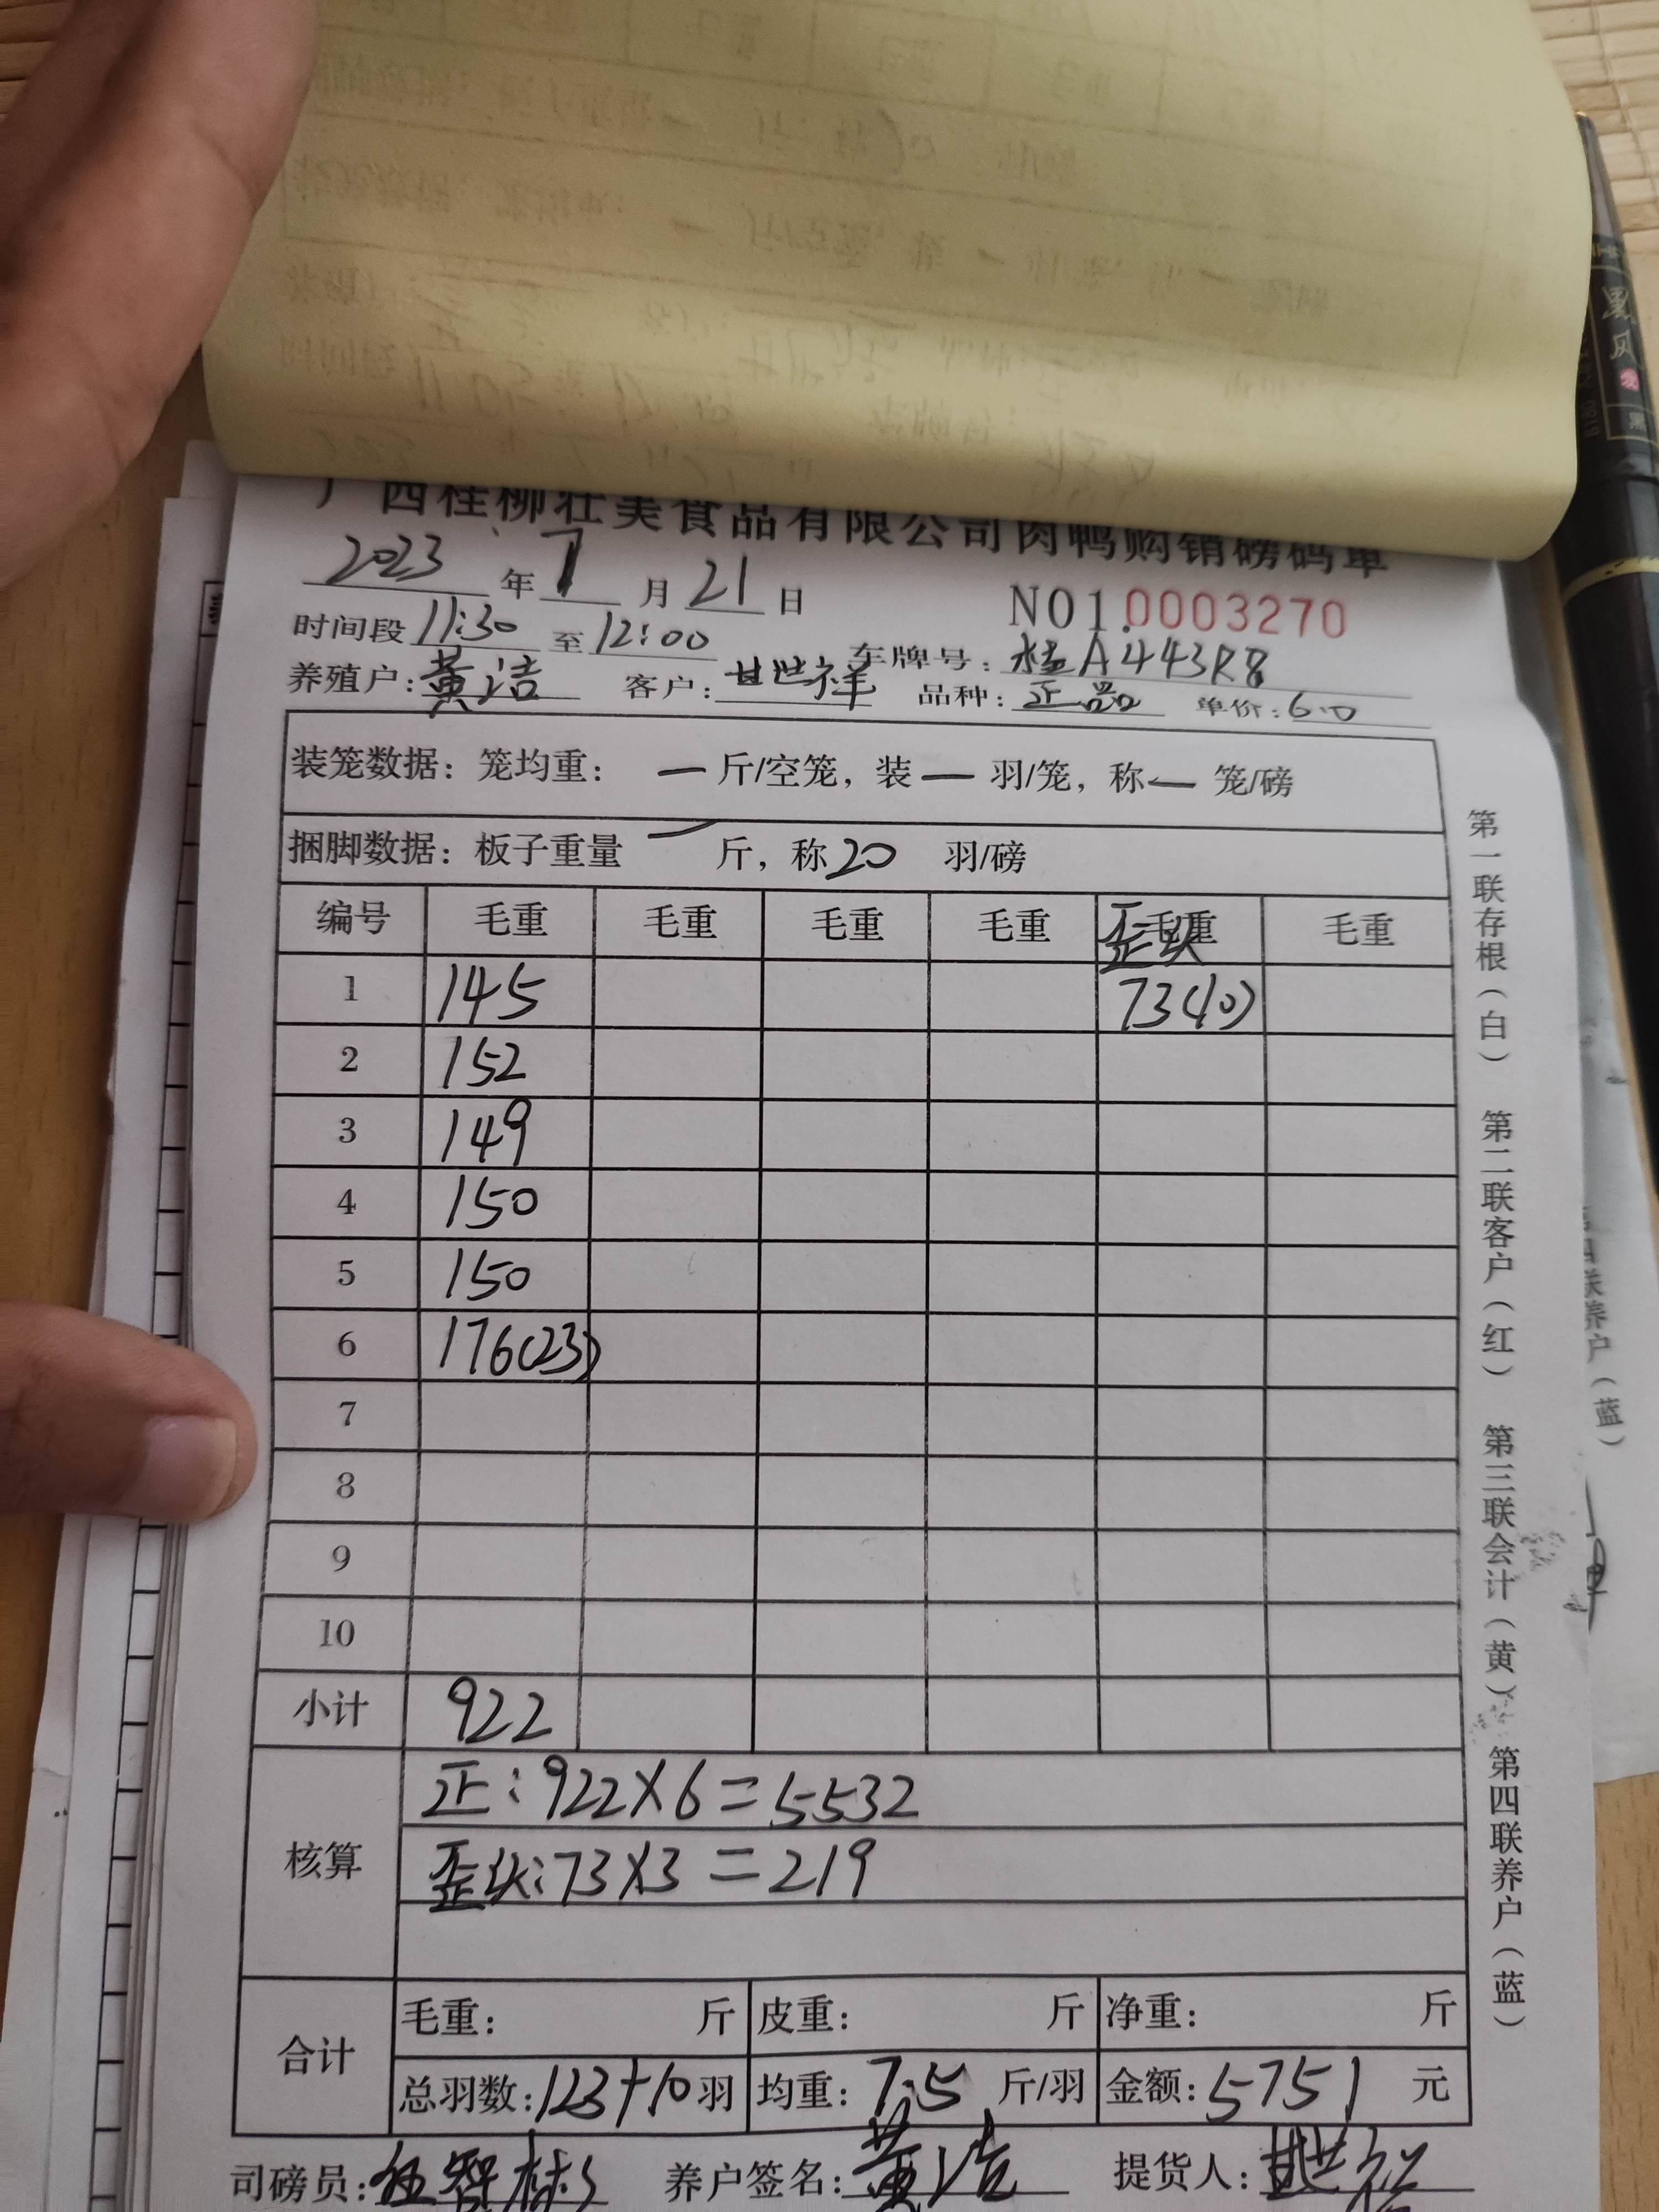 广西桂柳壮美食品有限公司肉鸭购销磅码单
2023年7月21日
NO1.0003270
时间段11:30至12:00 车牌号:桂A443R8
养殖户:黄洁 客户:甘世祥 品种:正品 单价:6.0
装笼数据:笼均重: — 斤/空笼,装 — 羽/笼,称 — 笼/磅
捆脚数据:板子重量 — 斤,称20 羽/磅
编号 毛重 毛重 毛重 毛重 歪头毛重 毛重
1 145 73(10)
2 152
3 149
4 150
5 150
6 176(23)
7
8
9
10
小计 922
核算 正:922×6=5532
歪头:73×3=219
合计 毛重: 斤 皮重: 斤 净重: 斤
总羽数:123+10羽 均重:7.5斤/羽 金额:5751元
司磅员: 养户签名:黄洁 提货人:甘世祥
第一联存根(白) 第二联客户(红) 第三联会计(黄) 第四联养户(蓝)
联养户(蓝)
黑风